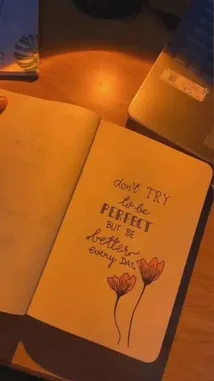 don't TRY
to be
PERFECT
BUT BE
better
every DAY.